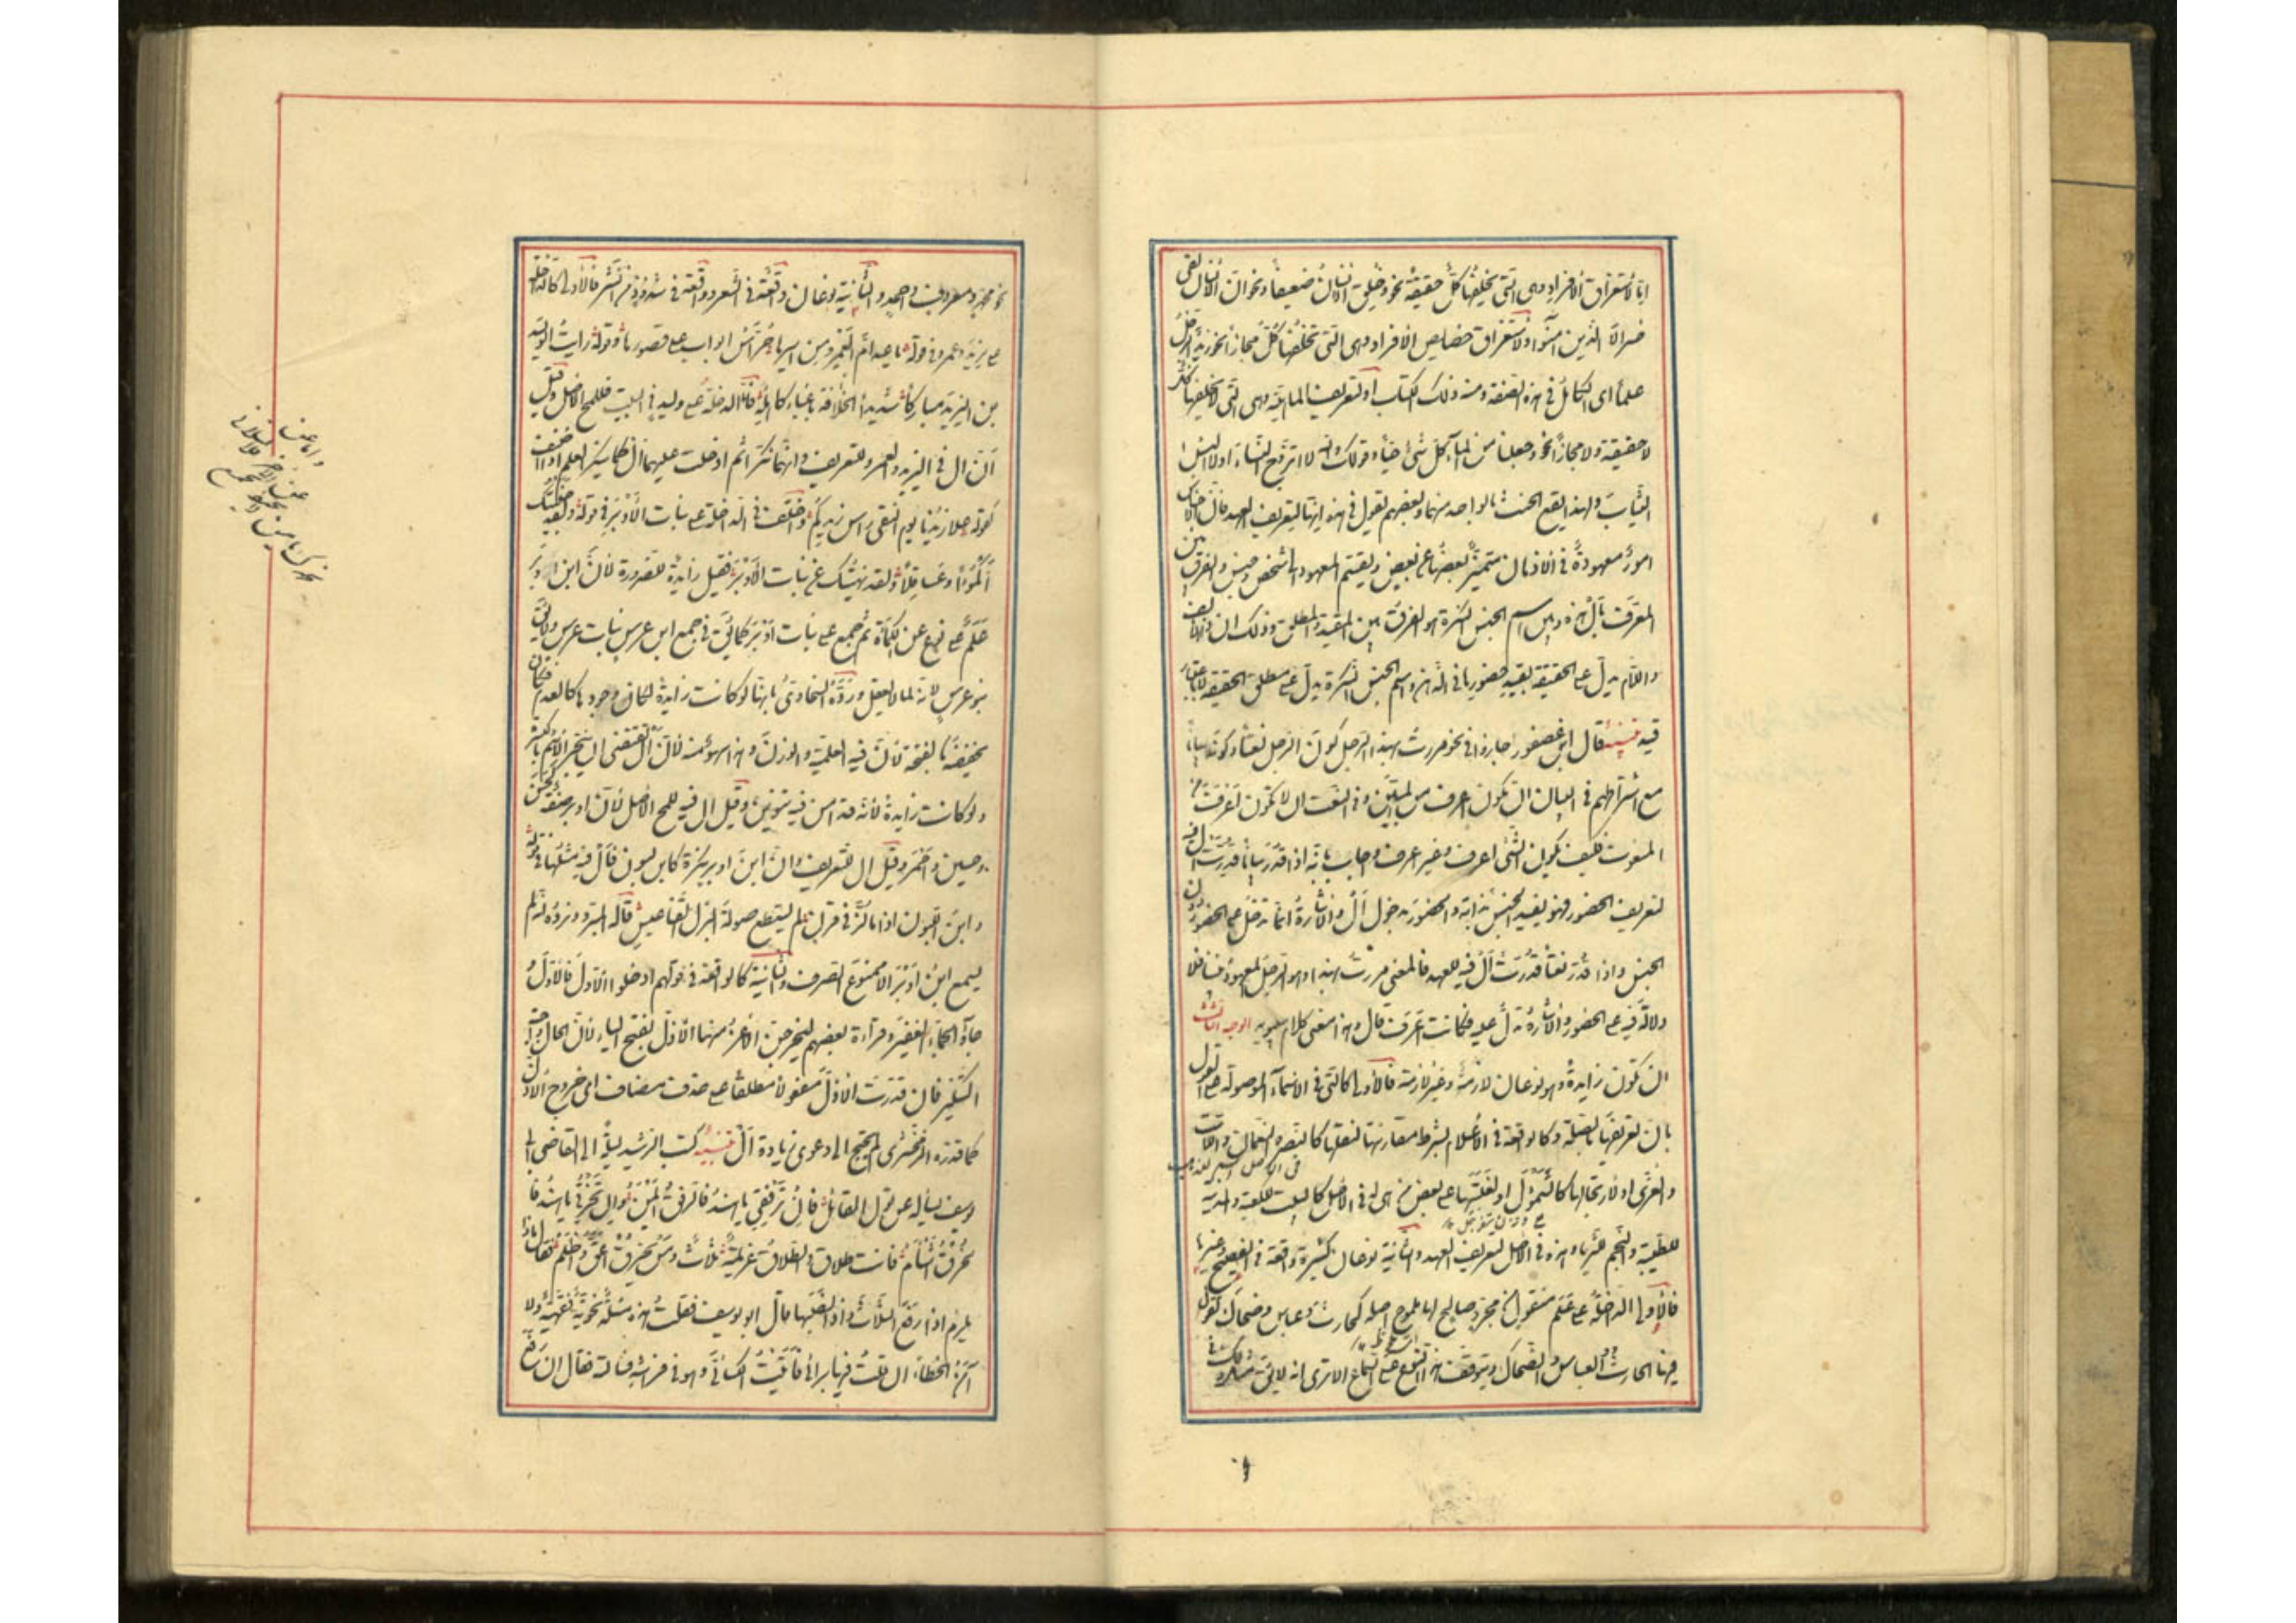 اما لاستغراق الافراد وهى التى تخلفها كل حقيقة نحو وخلق الانسان ضعيفا ونحو ان الانسان لفى
خسر الا الذين امنوا او لاستغراق خصايص الافراد وهى التى تخلفها كل مجازا نحو زيد الرجل
علما اى الكامل فى هذه الصفة ومنه ذلك الكتاب او لتعريف الماهية وهى التى لا تخلفها كل
لا حقيقة ولا مجازا نحو وجعلنا من الماء كل شئ حيا وقولك والله لا اتزوج النساء او لا البس
الثياب ولهذا يقع الحنث بالواحد منهما وبعضهم يقول فى هذه انها لتعريف العهد فان الاجناس
امور معهودة فى الاذهان متميز بعضها عن بعض ويقسم المعهود الى شخص وجنس والفرق بين
المعرف بال هذه وبين اسم الجنس النكرة هو الفرق بين المقيد والمطلق وذلك ان ذا الالف
واللام يدل على الحقيقة بقيد حضورها فى الذهن واسم الجنس النكرة يدل على مطلق الحقيقة لا باعتبار
قيد تنبيه قال ابن عصفور اجازوا فى نحو مررت بهذا الرجل كون الرجل نعتا وكونه بيانا
مع اشتراطهم فى البيان ان يكون اعرف من المبين وفى النعت ان لا يكون اعرف من
المنعوت فكيف يكون الشئ اعرف وغير اعرف واجاب بانه اذا قدر بيانا قدرت ال فيه
لتعريف الحضور فهو يفيد الجنس بذاته والحضور بدخول ال والاشارة انما تدل على الحضور دون
الجنس واذا قدر نعتا قدرت ال فيه للعهد فالمعنى مررت بهذا وهو الرجل المعهود بيننا فلا
دلالة فيه على الحضور والاشارة تدل عليه فكانت اعرف قال وهذا معنى كلام سيبويه الوجه الثالث
ان تكون زايدة وهو نوعان لازمة وغير لازمة فالاولى كالتى فى الاسماء الموصولة على القول
بان تعريفها بالصلة وكالواقعة فى الاعلام بشرط مقارنتها لنقلها كالنضر والنعمان واللات
والعزى او لارتجالها كالسموأل او لغلبتها على بعض من هى له فى الاصل كالبيت للكعبة والمدينة
لطيبة والنجم للثريا وهذه فى الاصل لتعريف العهد والثانية نوعان كثيرة واقعة فى الفصيح وغيرها
فالاولى الداخلة على علم منقول من مجرد صالح لها ملموح اصله كحارث وعباس وضحاك تقول
فيها الحارث والعباس والضحاك ويتوقف هذا النوع على السماع الا ترى انه لا يقال مثل ذلك فى
نحو محمد ومعروف واحمد والثانية نوعان واقعة فى الشعر وواقعة فى شذوذ من النثر فالاولى كالداخلة
على يزيد وعمرو فى قوله باعد ام العمرو من اسيرها حراس ابواب على قصورها وقوله رايت الوليد
بن اليزيد مباركا شديدا باعباء الخلافة كاهله فاما الداخلة على وليد فى البيت فللمح الاصل وقيل
ان ال فى اليزيد والعمرو للتعريف وانهما نكرا ثم ادخلت عليهما ال كما ينكر العلم اذا اضيف
كقوله علا زيدنا يوم النقى راس زيدكم واختلف فى الداخلة على بنات الاوبر فى قوله ولقد جنيتك
اكمؤا وعساقلا ولقد نهيتك عن بنات الاوبر فقيل زايدة للضرورة لان ابن اوبر
علم على نوع من الكمأة ثم جمع على بنات اوبر كما يقال فى جمع ابن عرس بنات عرس ولا يقال
بنو عرس لانه لما لا يعقل ورده السخاوى بانها لو كانت زايدة لكان وجودها كالعدم فكان
يخفض بالفتحة لان فيه العلمية والوزن وهذا سهو منه لان ال تقتضى ان ينجر الاسم بالكسرة
ولو كانت زايدة لانه قد امن فيه التنوين وقيل ال فيه للمح الاصل لان اوبر صفة كحسن
وحسين واحمر وقيل ال للتعريف وان ابن اوبر نكرة كابن لبون فال فيه مثلها فى قوله
وابن اللبون اذا ما لز فى قرن لم يستطع صولة البزل القناعيس قاله المبرد ويرده انه لم
يسمع ابن اوبر الا ممنوع الصرف والثانية كالواقعة فى قولهم ادخلوا الاول فالاول
وجاؤا الجماء الغفير وقراءة بعضهم ليخرجن الاعز منها الاذل بفتح الياء لان الحال واجبة
التنكير فان قدرت الاذل مفعولا مطلقا على حذف مضاف اى خروج الاذل
كما قدره الزمخشرى لم يحتج الى دعوى زيادة ال تنبيه كتب الرشيد ليلة الى القاضى ابى
يوسف يسأله عن قول القائل فان ترفقى يا هند فالرفق ايمن وان تخرقى يا هند فا
لخرق اشأم فانت طلاق والطلاق عزيمة ثلاث ومن يخرق اعق واظلم فقال ماذا
يلزم اذا رفع الثلاث واذا نصبها قال ابو يوسف فقلت هذه مسئلة نحوية فقهية ولا
آمن الخطاء ان قلت فيها برائى فاتيت الكسائى وهو فى فراشه فسالته فقال ان رفع